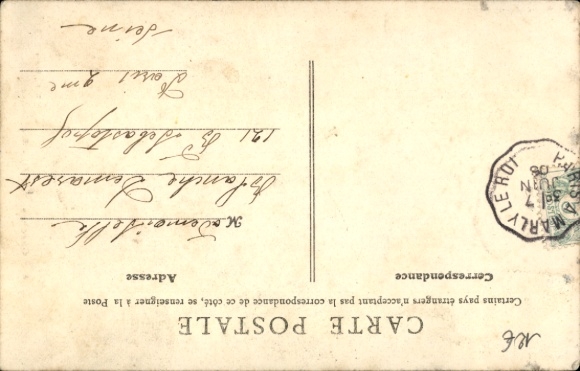 CARTE POSTALE
Certains pays étrangers n'acceptant pas la correspondance de ce côté, se renseigner à la Poste
Correspondance
Adresse
Mademoiselle
Blanche Demarest
121 Bd Sébastopol
Paris 2me
Seine
PARIS A MARLY LE ROI
17
JUIN
08